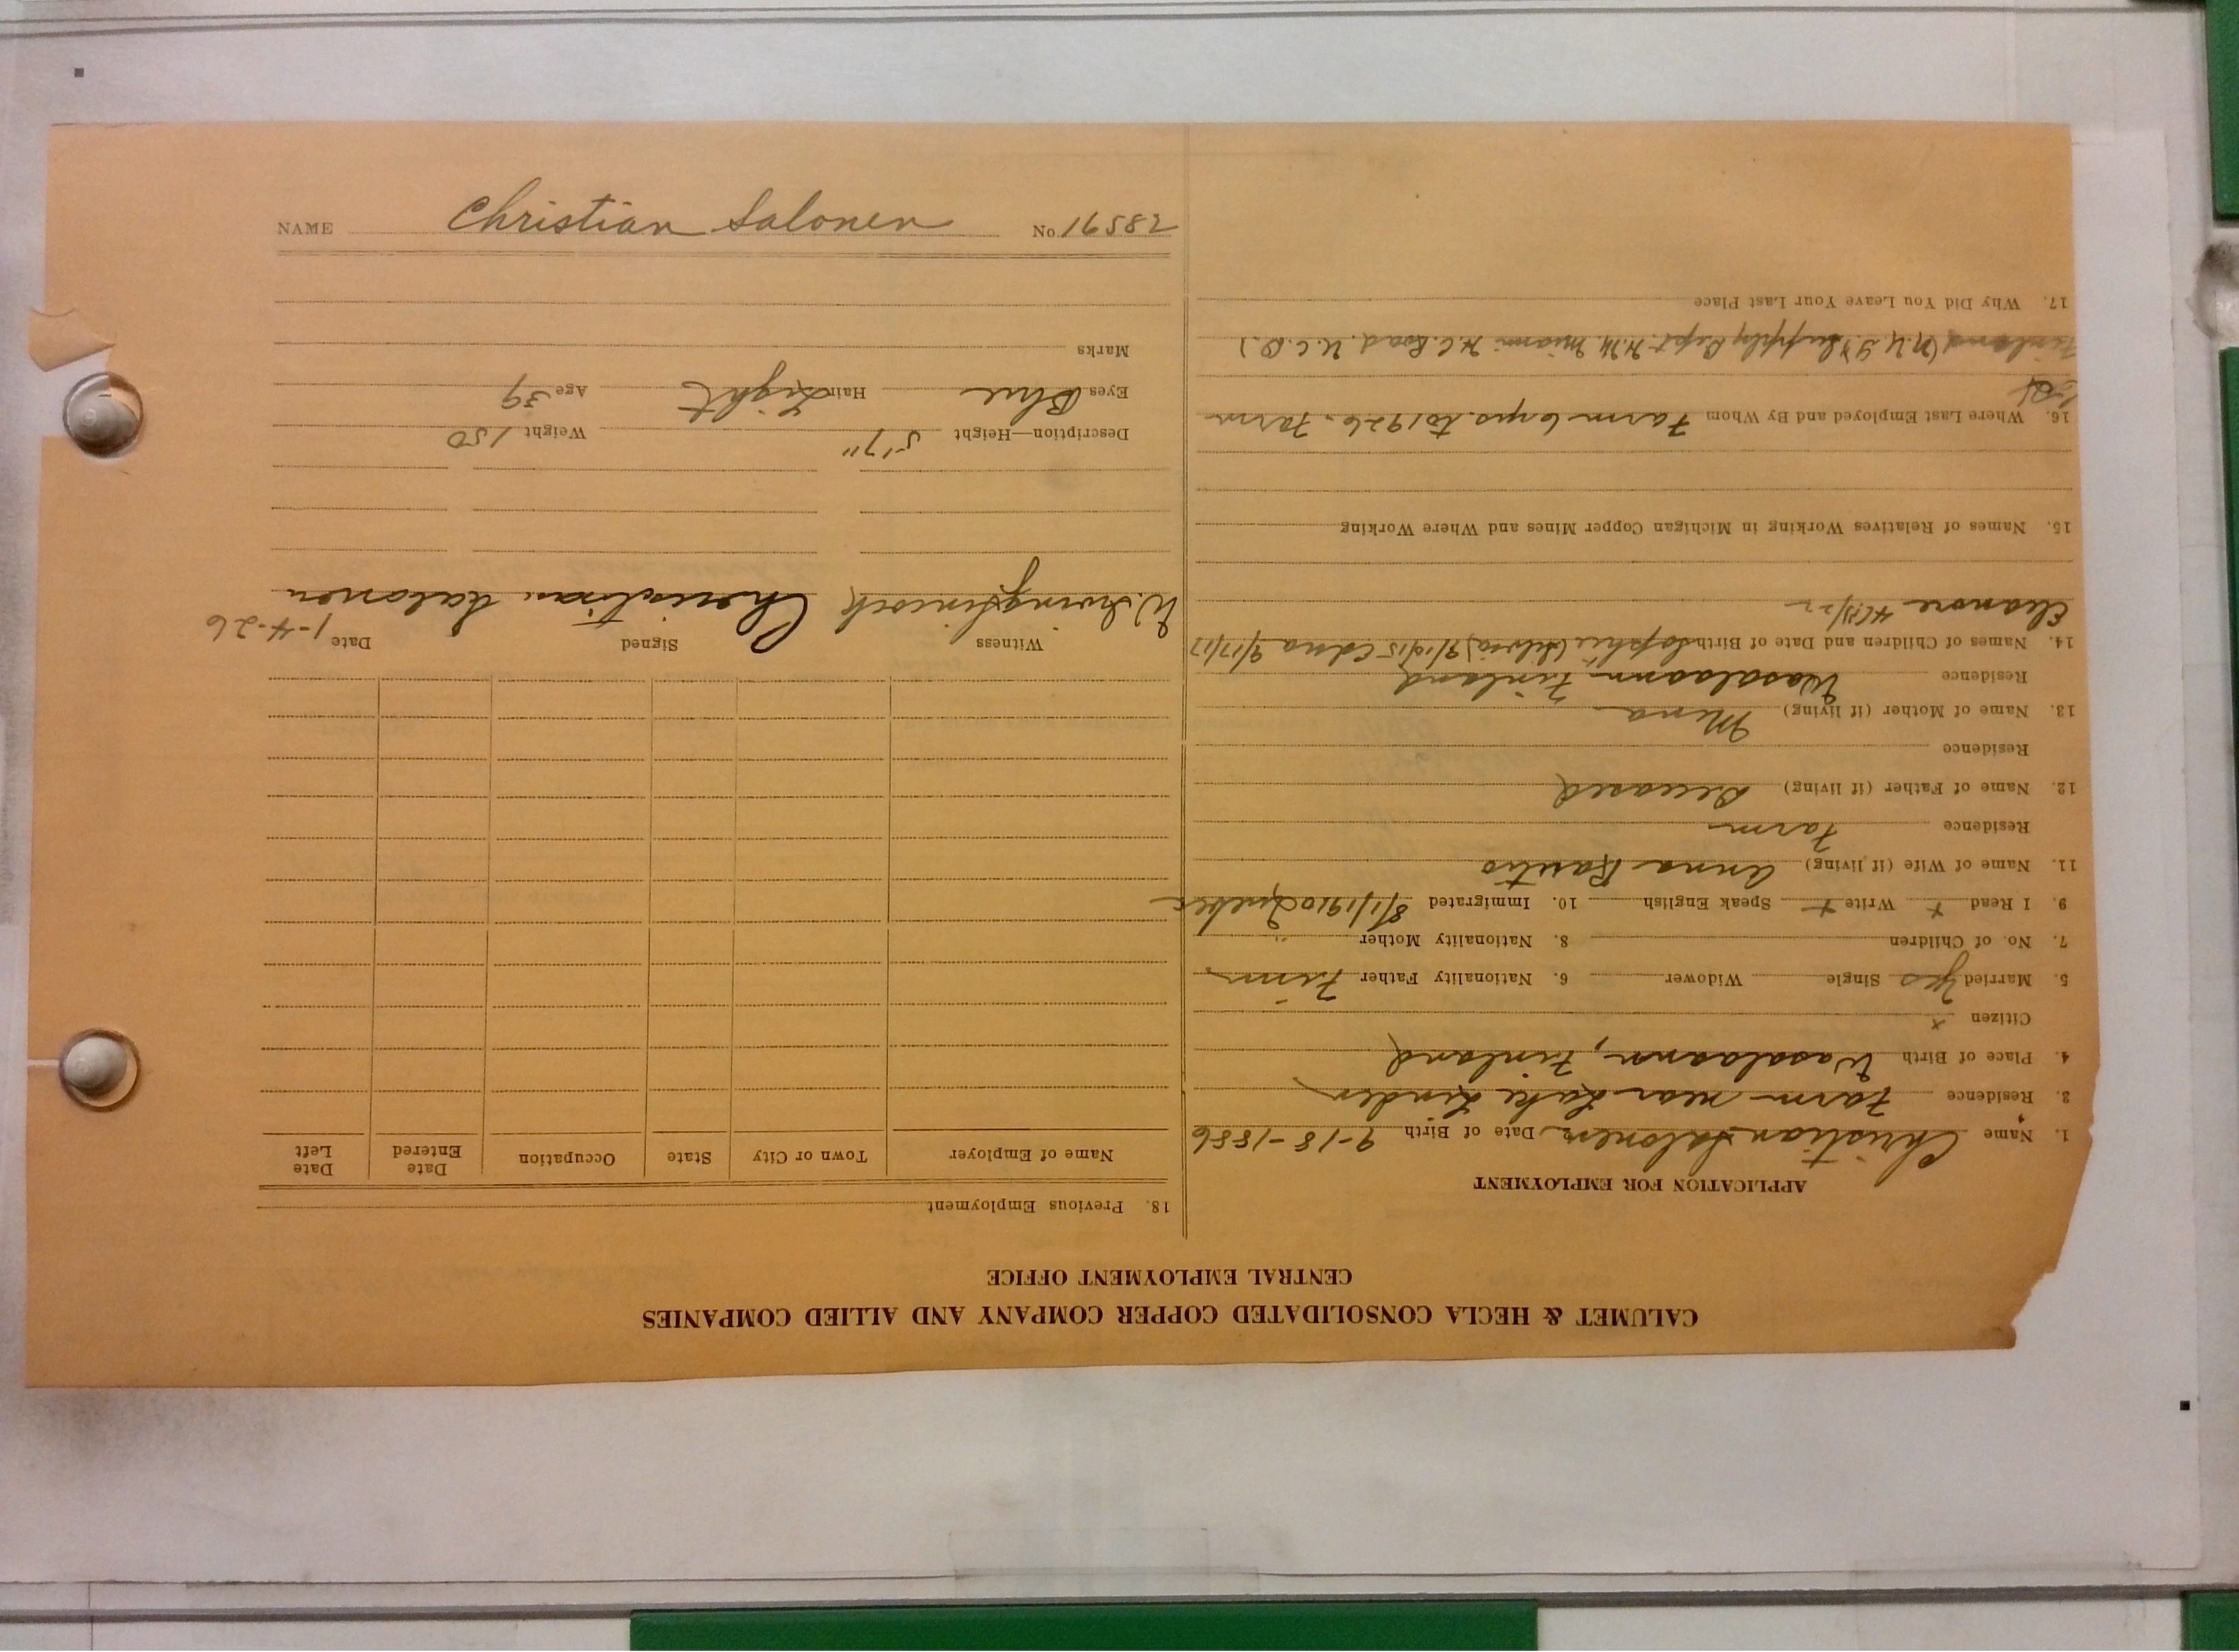 NAME Christian Salonen No. 16582
CALUMET & HECLA CONSOLIDATED COPPER COMPANY AND ALLIED COMPANIES
CENTRAL EMPLOYMENT OFFICE
APPLICATION FOR EMPLOYMENT
1. Name Christian Salonen Date of Birth 9-18-1886
3. Residence Farm near Lake Linden
4. Place of Birth Wasalaann, Finland
Citizen x
5. Married Yes Single Widower 6. Nationality Father Finn
7. No. of Children 8. Nationality Mother "
9. I Read + Write + Speak English 10. Immigrated 8/1/1910 Quebec
11. Name of Wife (if living) Anna Rautio
Residence Farm
12. Name of Father (if living) Deceased
Residence
13. Name of Mother (if living) Mina
Residence Wasalaann Finland
14. Names of Children and Date of Birth Sophie (Silvia) 9/10/15 Edna 9/17/17
Eleanore
15. Names of Relatives Working in Michigan Copper Mines and Where Working
16. Where Last Employed and By Whom Farm 6 yrs. to 1926. Farm
Finland Supply Dept. H.M. Miami H.C. Road. U.C.D.)
17. Why Did You Leave Your Last Place
18. Previous Employment
Name of Employer Town or City State Occupation Date Entered Date Left
Witness Signed Date 1-4-26
W. Irving Christian Salonen
Description—Height 5'7" Weight 150
Eyes Blue Hair Light Age 39
Marks